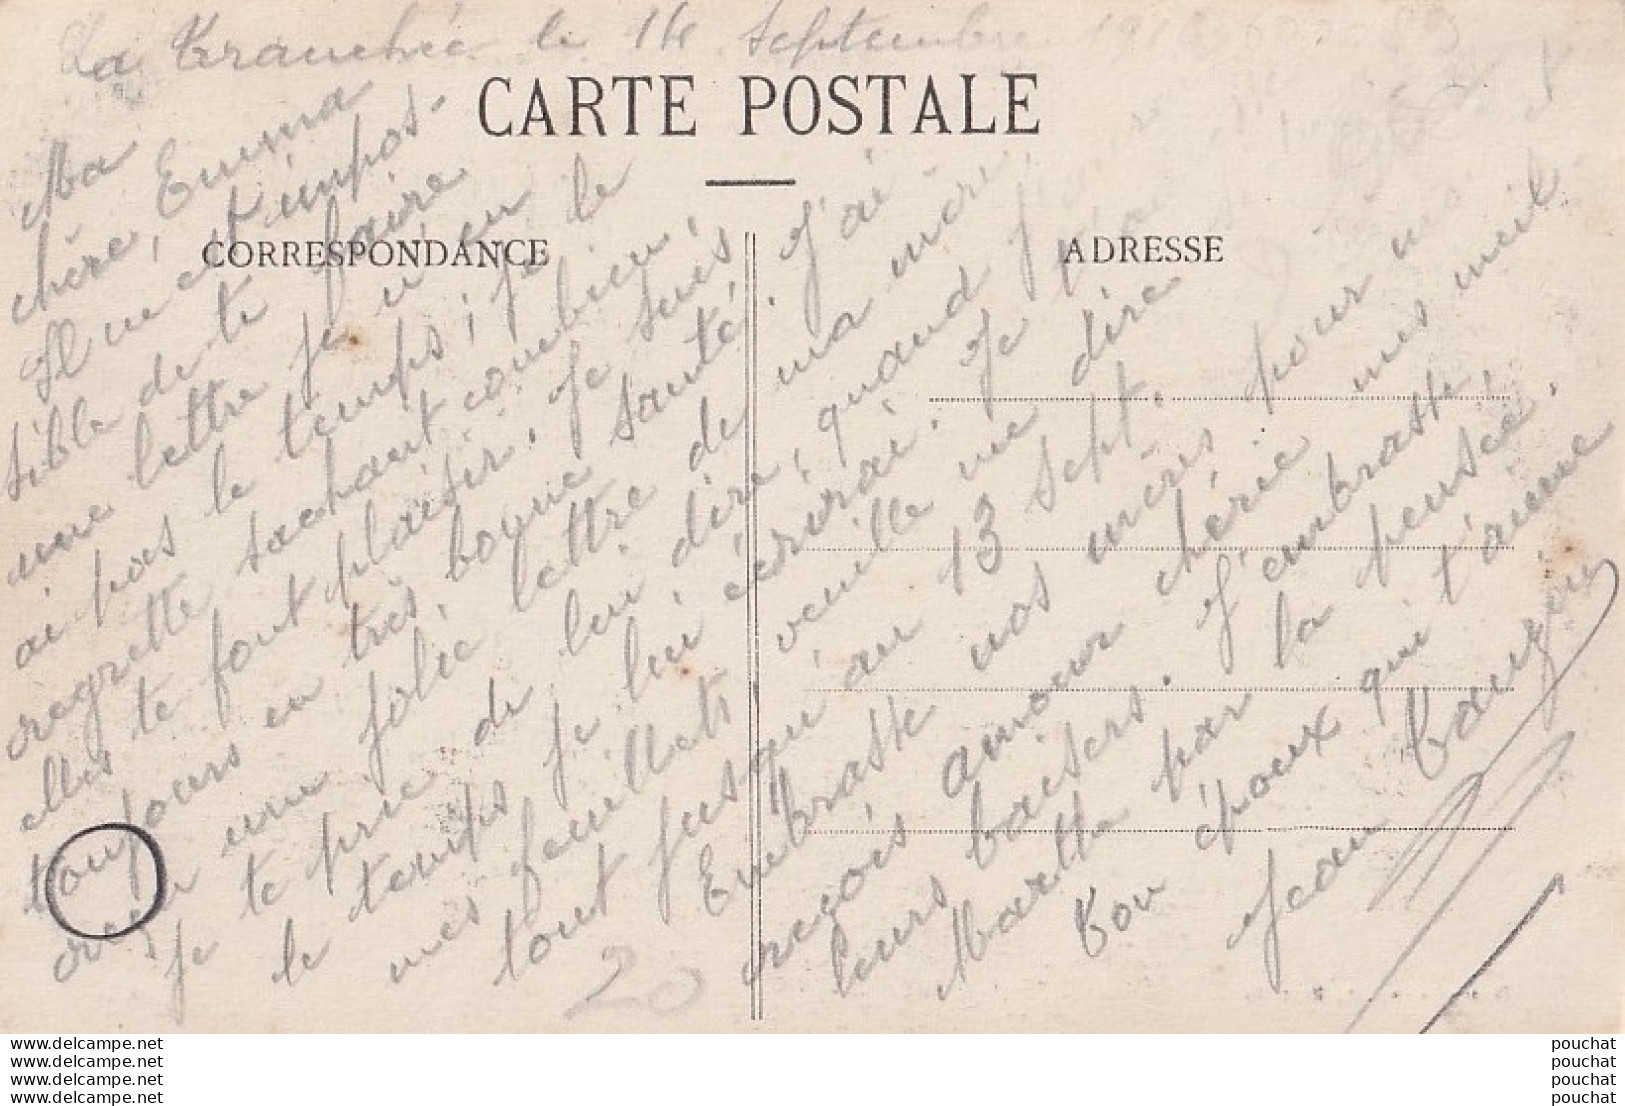 La Tranchée le 14 Septembre
CARTE POSTALE
CORRESPONDANCE
ADRESSE
Ma
chère, Emma
Il m'est impos-
sible de te faire
une lettre je n'en
ai pas le temps ; je le
regrette sachant combien,
elles te font plaisir. Je suis
toujours en très bonne santé. J'ai
reçu une jolie lettre de ma mère,
je te prie de lui dire, quand
le temps je lui écrirai. Je
mes feuillets veuille me dire
tout jusqu'au 13 sept.
Embrasse nos mères pour moi
reçois amour chérie mes meil-
leurs baisers. J'embrasse
Marthe par la pensée.
Ton époux qui t'aime
Jean
20
www.delcampe.net
www.delcampe.net
www.delcampe.net
www.delcampe.net
pouchat
pouchat
pouchat
pouchat